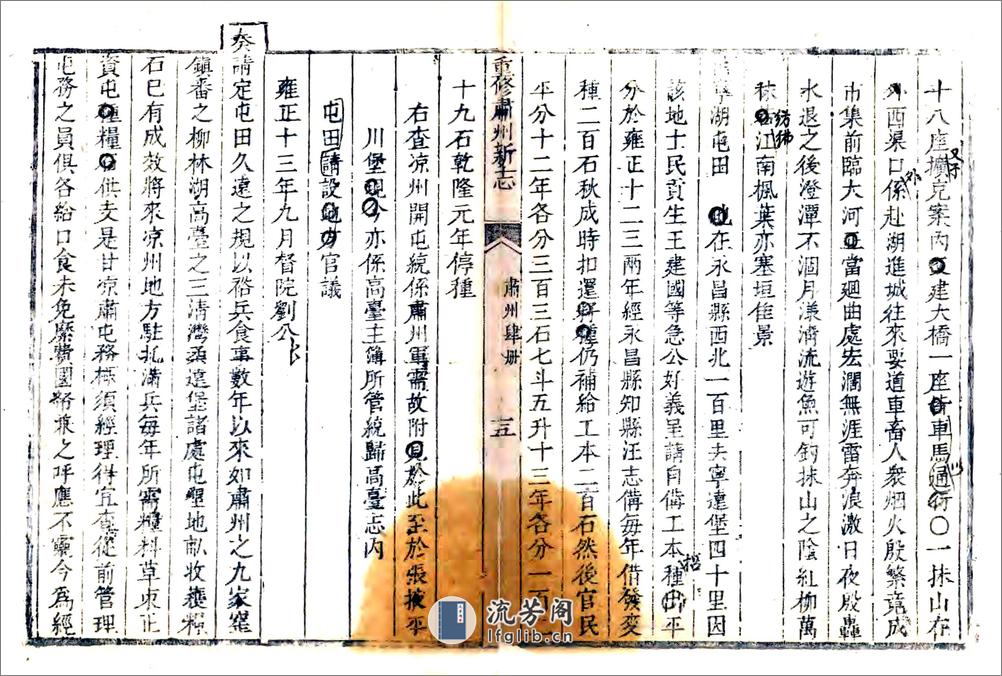 十八座擴克案內又建大橋一座車馬通行〇一抹山在
西渠口係赴湖進城往來要道車畜人衆烟火殷繁竟成
市集前臨大河正當廻曲處宏濶無涯雷奔浪激日夜殷轟
水退之後澄潭不涸月漾濟流遊魚可釣抹山之陰紅柳萬
株江南楓葉亦塞垣佳景
彷彿
湖屯田在永昌縣西北一百里去寧遠堡四十里因
該地士民貢生王建國等急公好義呈請自備工本種平
分於雍正十二三兩年經永昌縣知縣汪志備每年借發麥
種二百石秋成時扣還仍補給工本二百石然後官民
平分十二年各分三百三石七斗五升十三年各分一百
十九石乾隆元年停種
右查凉州開屯統係肅州軍需故附見於此至於張掖平
川堡現今亦係高臺主簿所管統歸高臺志內
屯田請設官議
雍正十三年九月督院劉公
奏請定屯田久遠之規以裕兵食事數年以來如肅州之九家窰
鎮番之柳林湖高臺之三清灣柔遠堡諸處屯墾地畝收穫糧
石已有成效將來凉州地方駐扎滿兵每年所需糧料草束正
資屯種糧供支是甘凉肅屯務極須經理得宜查從前管理
屯務之員俱各給口食未免縻費國帑兼之呼應不靈今爲經
重修肅州新志
肅州肆册
十五
流芳阁
lfglib.cn